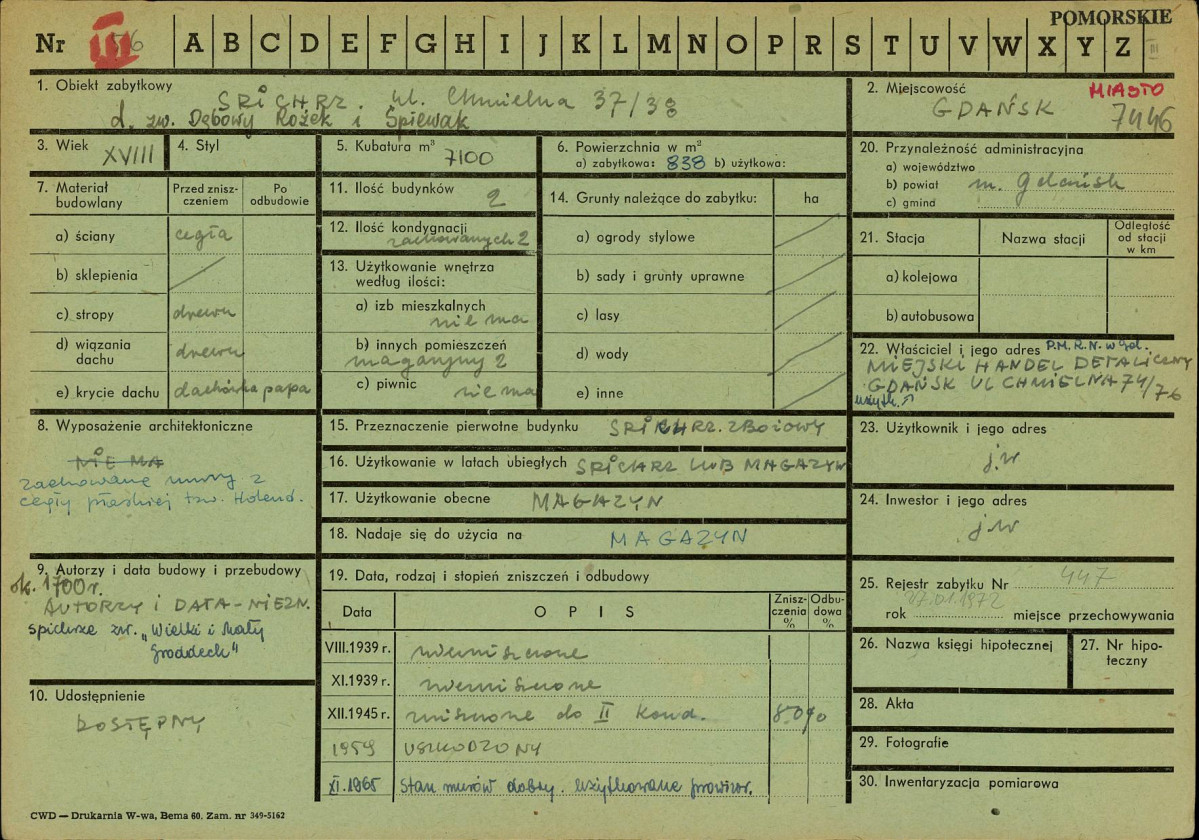 POMORSKIE
Nr III 56 A B C D E F G H I J K L M N O P R S T U V W X Y Z III
1. Obiekt zabytkowy
SPICHRZ. ul. Chmielna 37/38
d. zw. Dębowy Rożek i Śpiewak
2. Miejscowość MIASTO
GDAŃSK 7446
3. Wiek XVIII
4. Styl
5. Kubatura m³ 7100
6. Powierzchnia w m²
a) zabytkowa: 838 b) użytkowa:
7. Materiał budowlany
Przed zniszczeniem
Po odbudowie
a) ściany cegła
b) sklepienia
c) stropy drewn
d) wiązania dachu drewn
e) krycie dachu dachówka papa
8. Wyposażenie architektoniczne
NIE MA
zachowane mury z
cegły płaskiej tzw. Holend.
9. Autorzy i data budowy i przebudowy
ok. 1700 r.
AUTORZY I DATA - NIEZN.
spichrze zw. „Wielki i Mały
Groddeck"
10. Udostępnienie
DOSTĘPNY
11. Ilość budynków 2
12. Ilość kondygnacji
zachowanych 2
13. Użytkowanie wnętrza
według ilości:
a) izb mieszkalnych
nie ma
b) innych pomieszczeń
magazyny 2
c) piwnic nie ma
14. Grunty należące do zabytku: ha
a) ogrody stylowe
b) sady i grunty uprawne
c) lasy
d) wody
e) inne
15. Przeznaczenie pierwotne budynku SPICHRZ. ZBOŻOWY
16. Użytkowanie w latach ubiegłych SPICHRZ LUB MAGAZYN
17. Użytkowanie obecne MAGAZYN
18. Nadaje się do użycia na MAGAZYN
19. Data, rodzaj i stopień zniszczeń i odbudowy
Data OPIS Zniszczenia % Odbudowa %
VIII.1939 r. niezniszczone
XI.1939 r. niezniszczone
XII.1945 r. zniszczone do II kond. 80%
1959 USZKODZONY
XI.1965 Stan murów dobry. użytkowane prowizor.
20. Przynależność administracyjna
a) województwo
b) powiat m. Gdańsk
c) gmina
21. Stacja Nazwa stacji Odległość od stacji w km
a) kolejowa
b) autobusowa
22. Właściciel i jego adres P.M.R.N. w Gd.
MIEJSKI HANDEL DETALICZNY
GDAŃSK UL CHMIELNA 74/76
użytk.
23. Użytkownik i jego adres
j.w
24. Inwestor i jego adres
j.w
25. Rejestr zabytku Nr 447
27.01.1972
rok miejsce przechowywania
26. Nazwa księgi hipotecznej
27. Nr hipoteczny
28. Akta
29. Fotografie
30. Inwentaryzacja pomiarowa
CWD — Drukarnia W-wa, Bema 60. Zam. nr 349-5162